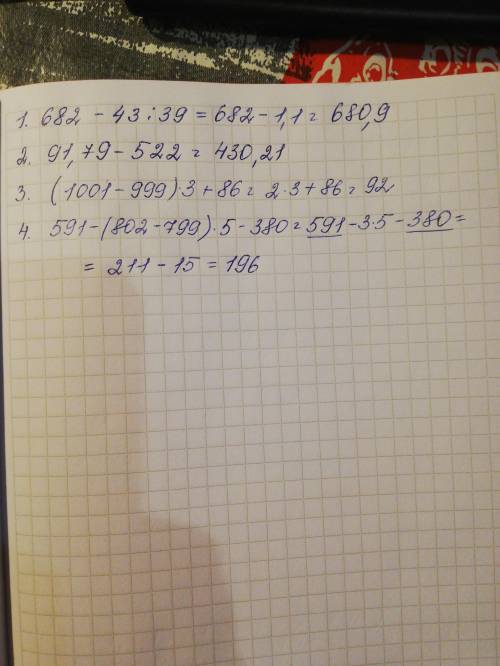 1. 682 - 43 : 39 = 682 - 1,1 = 680,9
2. 91,79 - 522 = 430,21
3. (1001 - 999) · 3 + 86 = 2 · 3 + 86 = 92
4. 591 - (802 - 799) · 5 - 380 = 591 - 3 · 5 - 380 =
= 211 - 15 = 196